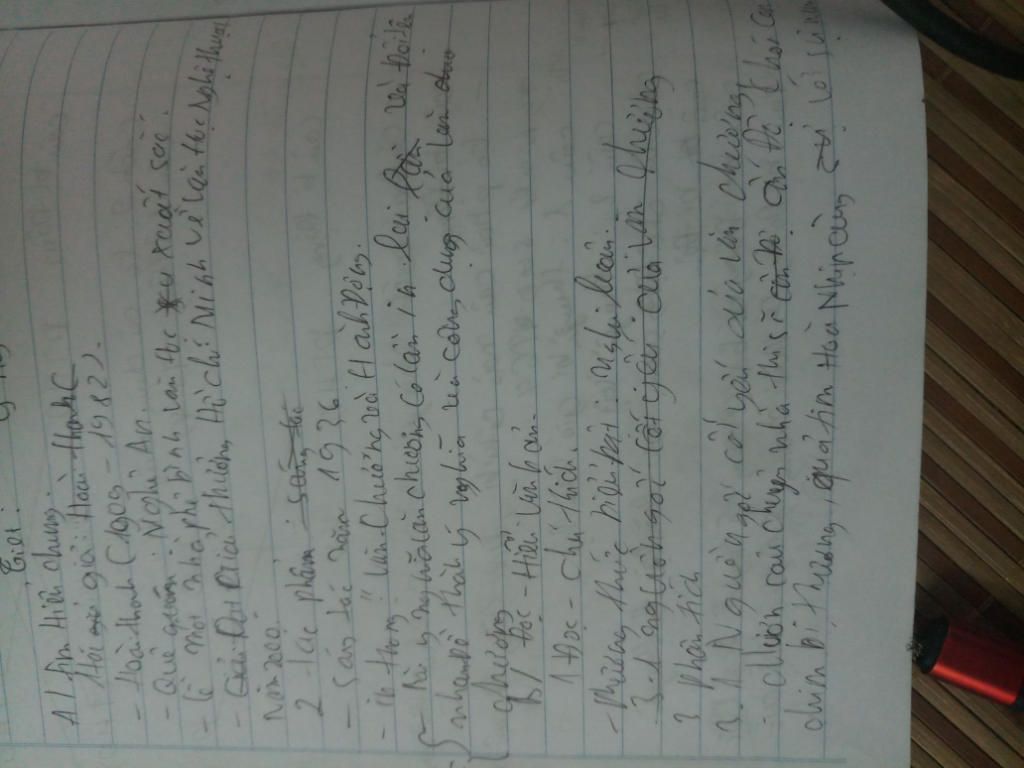 A/ Tìm Hiểu chung:
1 tác giả: Hoài thanh
- Hoài thanh (1909 - 1982).
- quê quán: Nghệ An
- là một nhà phê bình văn học xuất sắc.
- Giải thưởng Hồ chí Ninh về văn học Nghệ thuật
năm 2000
2 tác phẩm
- sáng tác năm 1936.
- in trong " văn chương và Hành Động.
- ý nghĩa văn chương có lần in lại
nhan đề thành ý nghĩa và công dụng của văn
chương
B/ Đọc - Hiểu văn bản.
1 Đọc - chú thích.
- phương thức biểu đạt: Nghị luận.
3. 1 nguồn gốc cốt yếu của văn chương
3 phân tích
3.1 Nguồn gốc cốt yếu của văn chương
- Mượn câu chuyện nhà thi sĩ ấn Độ
chim bị thương, quả tim Hoà Nhịp cùng